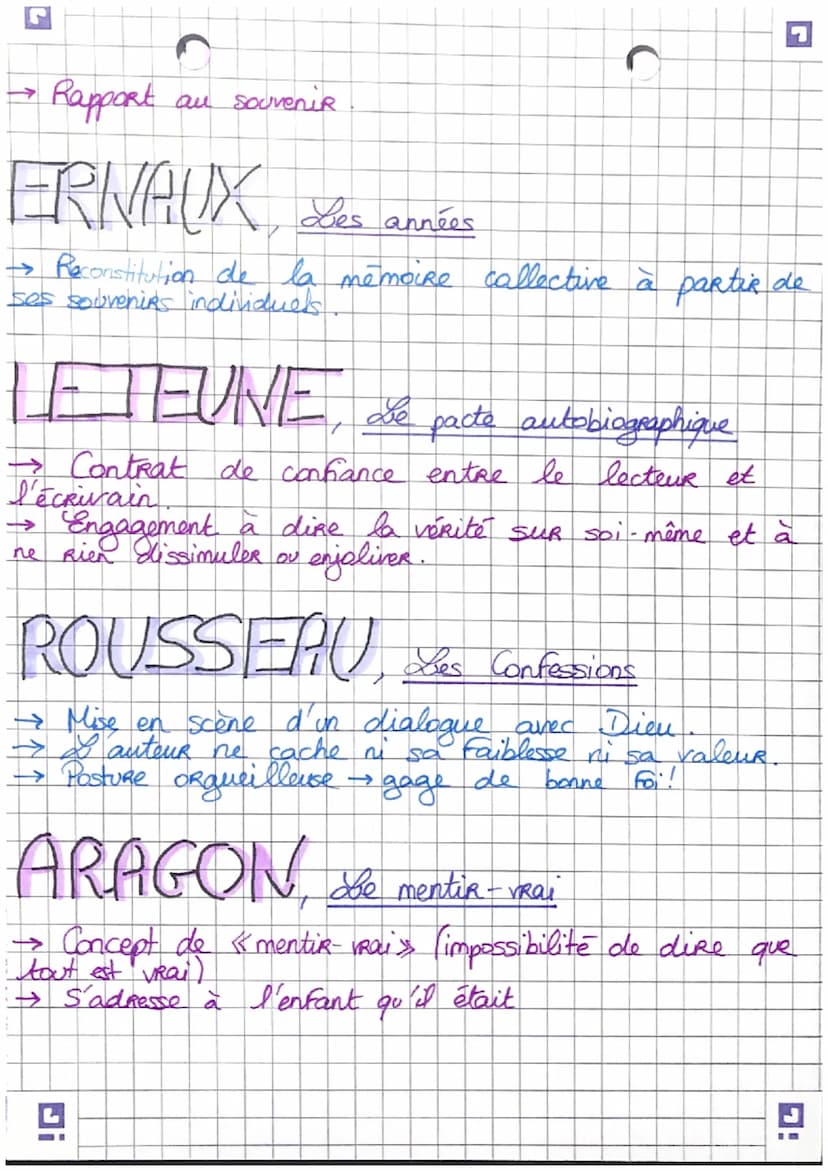 → Rapport au souvenir.
ERNAUX, Les années
→ Reconstitution de la mémoire collective à partir de
ses souvenirs individuels.
LEJEUNE, Le pacte autobiographique
→ Contrat de confiance entre le lecteur et
l'écrivain.
→ Engagement à dire la vérité sur soi-même et à
ne rien dissimuler ou enjoliver.
ROUSSEAU, Les Confessions
→ Mise en scène d'un dialogue avec Dieu.
→ L'auteur ne cache ni sa faiblesse ni sa valeur.
→ Posture orgueilleuse → gage de bonne foi!
ARAGON, Le mentir-vrai
→ Concept de « mentir-vrai » (impossibilité de dire que
tout est vrai)
→ S'adresse à l'enfant qu'il était